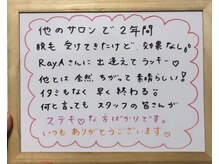 他のサロンで2年間
脱毛 受けてきたけど、効果なし
RAYAさんに 出逢えて ラッキー♡
他とは 全然 ちがって 素晴らしい!
イタミもなく 早く 終わる☺
何と言っても スタッフの 皆さんが
ステキ♡な方ばかりです。
いつもありがとうございます♡